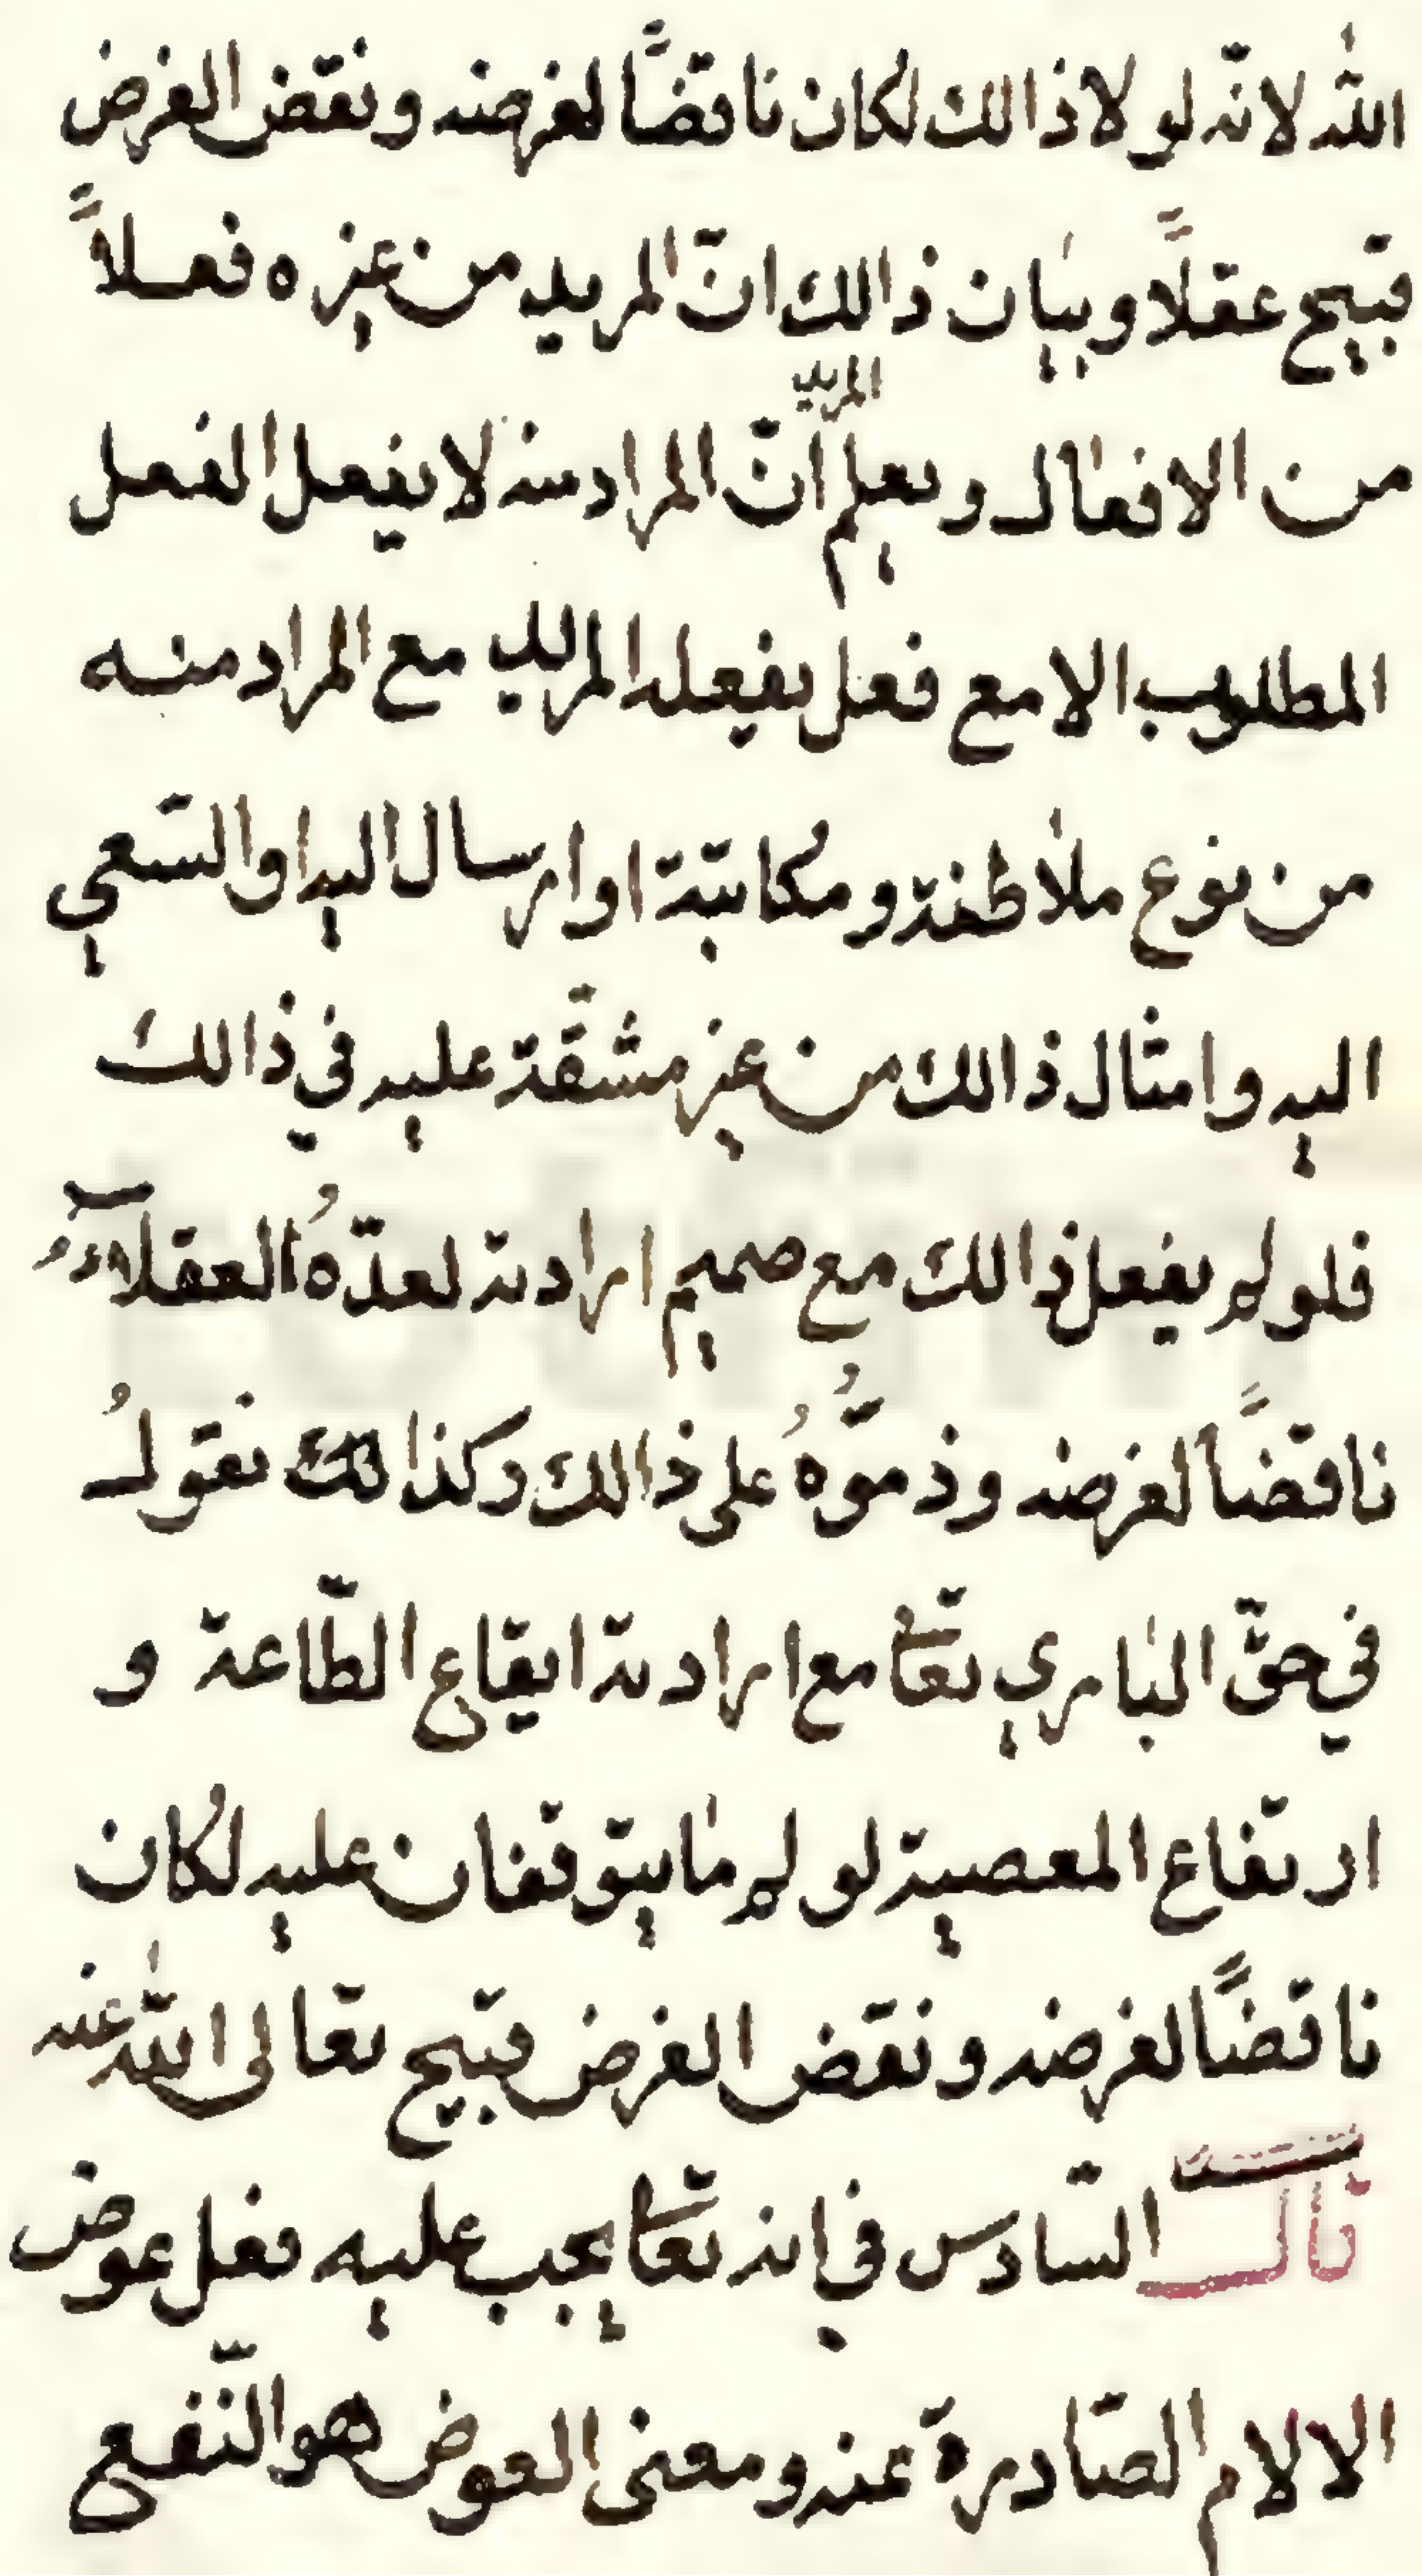 الله لانّه لولا ذالك لكان ناقضًا لغرضه ونقض الغرض
قبيح عقلًا وبيان ذالك انّ المريد من غيره فعلاً
المريد
من الافعال ويعلم انّ المراد منه لا يفعل الفعل
المطلوب الا مع فعل يفعله المريد مع المراد منه
من نوع ملاطفة ومكاتبة او ارسال اليه او السّعي
اليه وامثال ذالك من غير مشقّة عليه في ذالك
فلو لم يفعل ذالك مع صميم ارادته لعدّهُ العقلآءُ
ناقضاً لغرضه وذمّوُهُ على ذالك وكذالك نقولُ
في حقّ الباري تعّا مع ارادته ايقاع الطّاعة و
ارتفاع المعصية لو لم ما يتوقفان عليه لكان
ناقضًا لغرضه ونقض الغرض قبيح تعالى الله عنه
قال السّادس في انه تعّا يجب عليه فعل عوض
الالام الصّادرة عنه ومعنى العوض هو النّفع